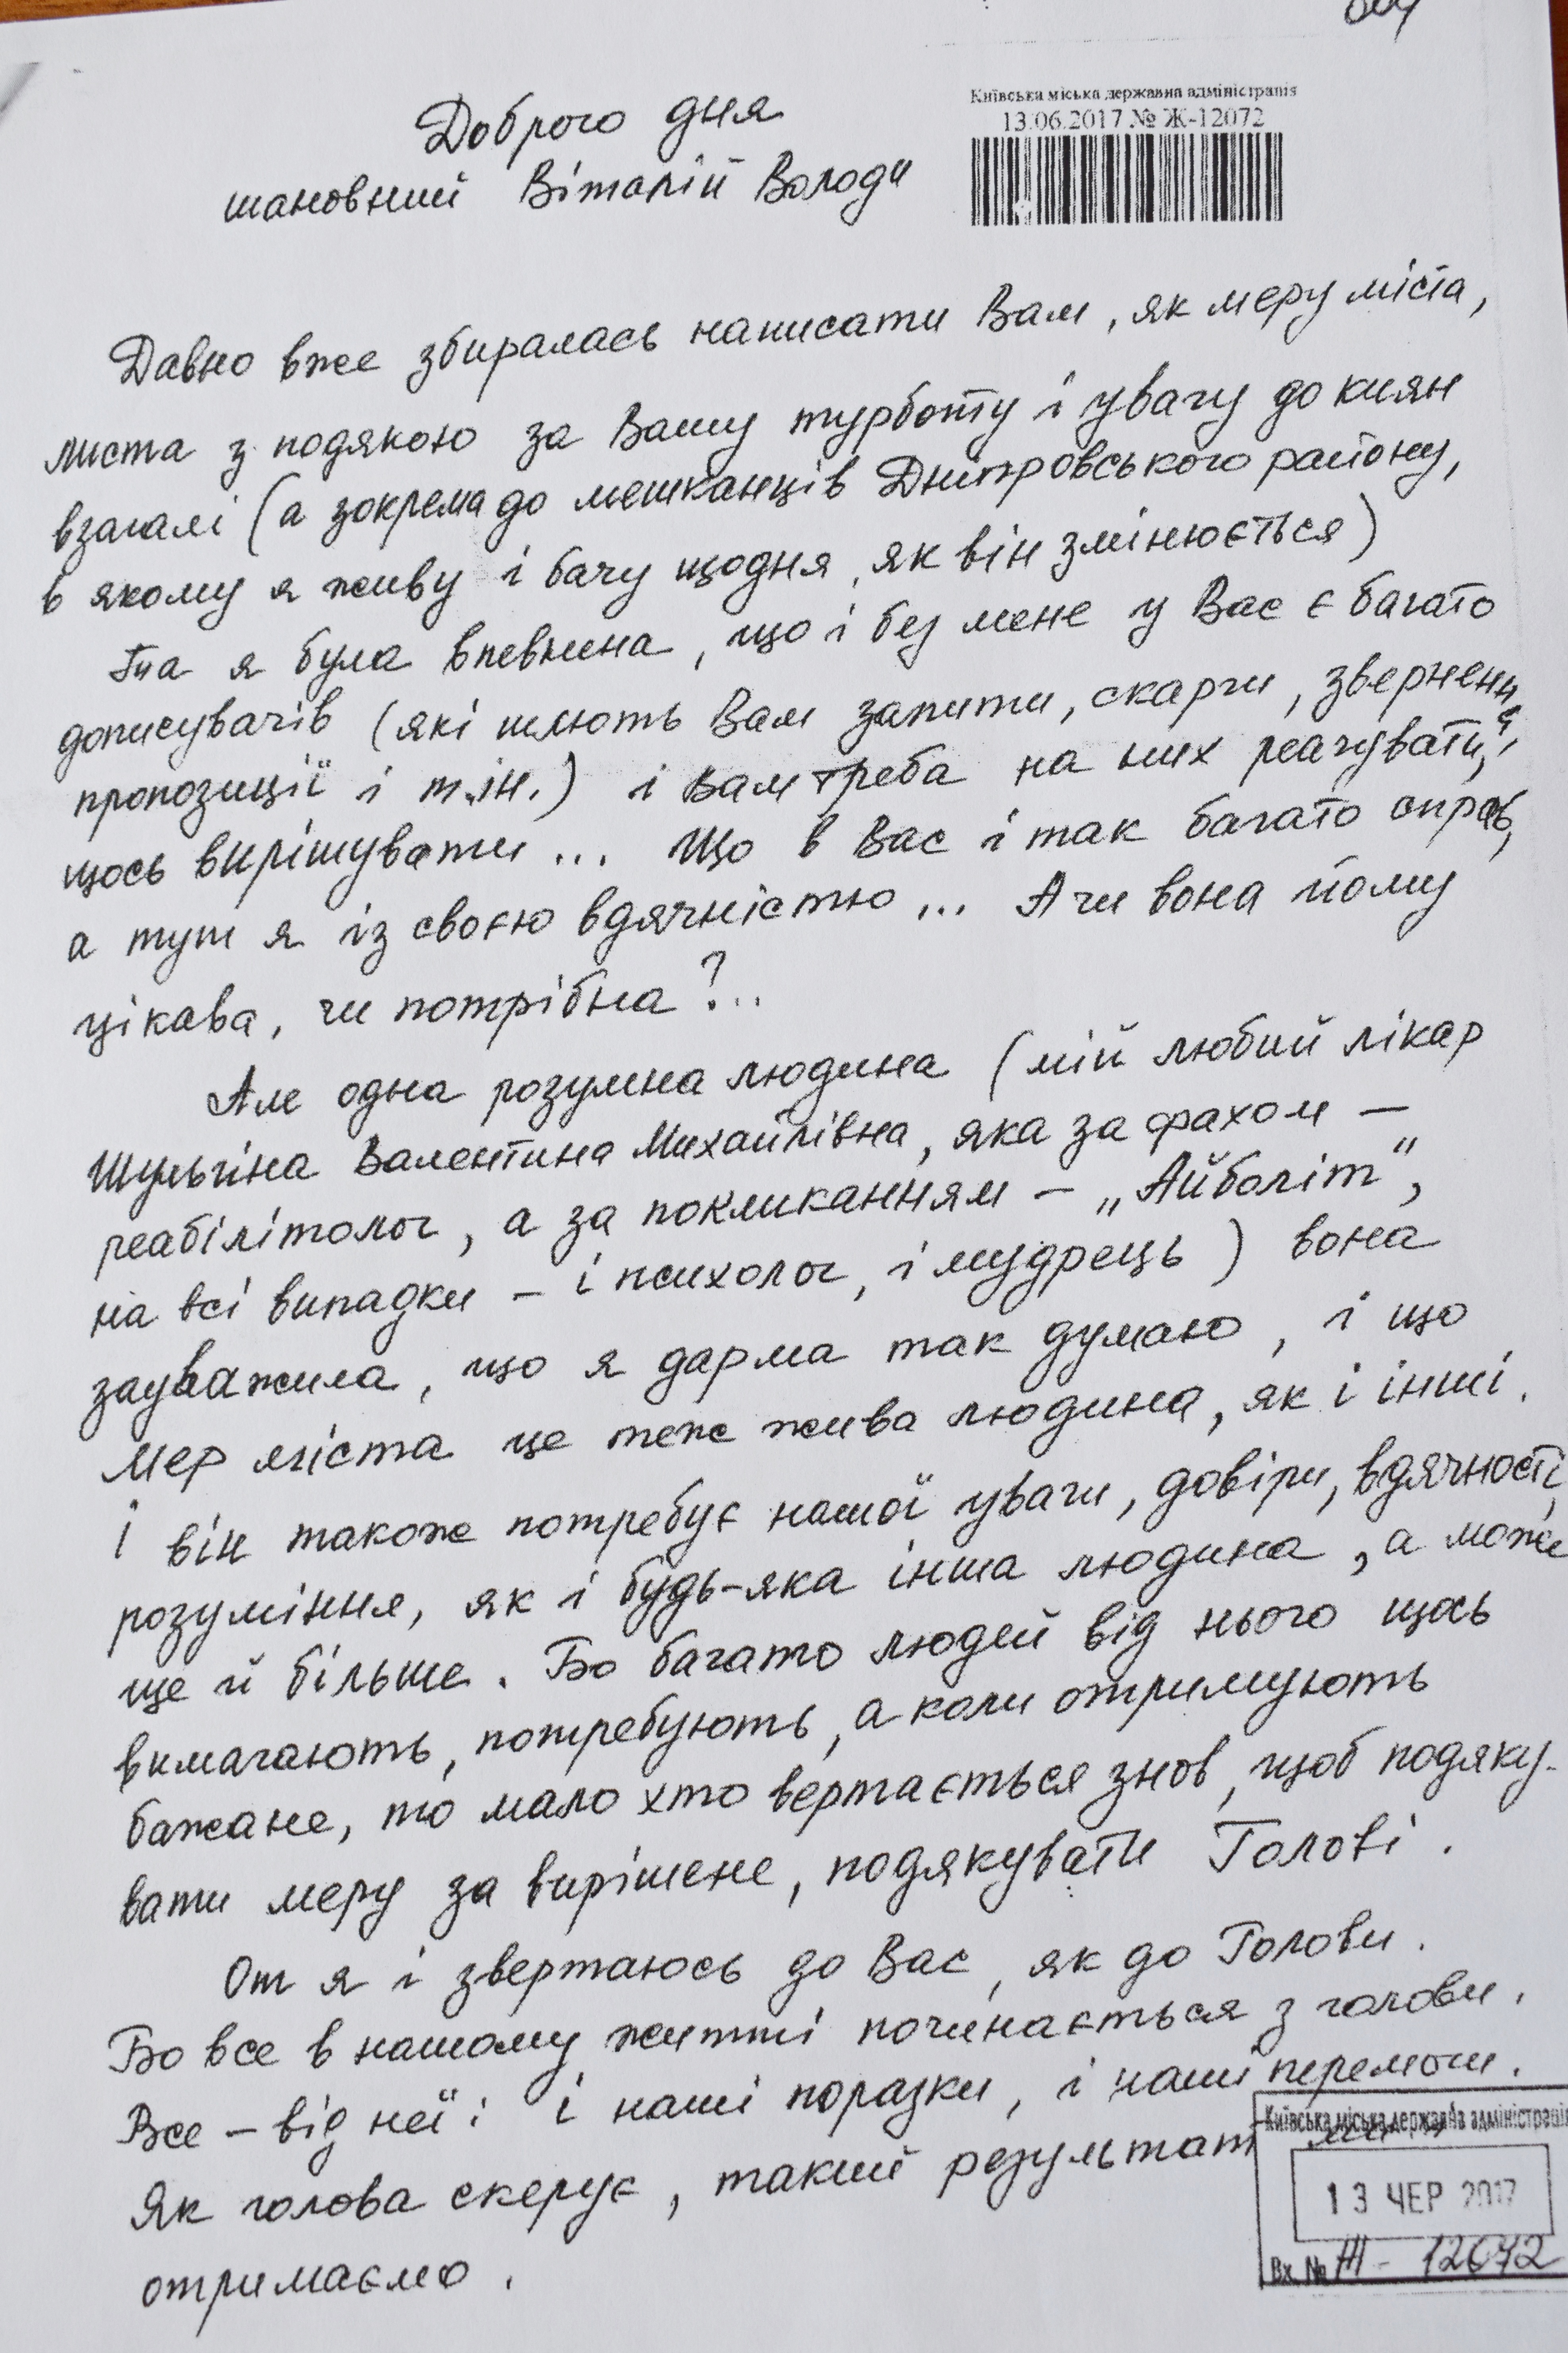 Київська міська державна адміністрація
13.06.2017 № Ж-12072
Доброго дня
шановний Віталій Володи
Давно вже збиралась написати Вам, як меру міста,
листа з подякою за Вашу турботу і увагу до киян
взагалі (а зокрема до мешканців Дніпровського району,
в якому я живу і бачу щодня, як він змінюється)
Та я була впевнена, що і без мене у Вас є багато
дописувачів (які шлють Вам запити, скарги, звернення,
пропозиції і т.ін.) і Вам треба на них реагувати,
щось вирішувати... Що в Вас і так багато справ,
а тут я із своєю вдячністю... А чи вона йому
цікава, чи потрібна?..
Але одна розумна людина (мій любий лікар
Шульгіна Валентина Михайлівна, яка за фахом –
реабілітолог, а за покликанням – „Айболіт",
на всі випадки – і психолог, і мудрець) вона
зауважила, що я дарма так думаю, і що
мер міста це теж жива людина, як і інші.
І він також потребує нашої уваги, довіри, вдячності,
розуміння, як і будь-яка інша людина, а може
ще й більше. Бо багато людей від нього щось
вимагають, потребують, а коли отримують
бажане, то мало хто вертається знов, щоб подяку-
вати меру за вирішене, подякувати Голові.
От я і звертаюсь до Вас, як до Голови.
Бо все в нашому житті починається з голови.
Все – від неї: і наші поразки, і наші перемоги.
Як голова скерує, такий результат ми й
отримаємо.
Київська міська державна адміністрація
13 ЧЕР 2017
Вх. № Ж - 12072